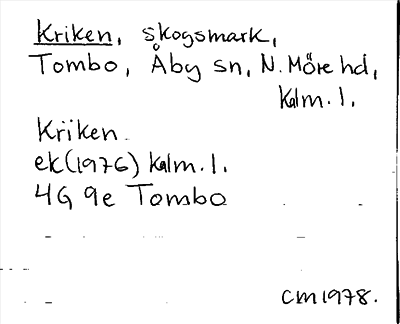 Kriken, skogsmark,
Tombo, Åby sn, N. Möre hd,
Kalm. l.
Kriken
ek (1976) Kalm. l.
4G 9e Tombo
CM 1978.